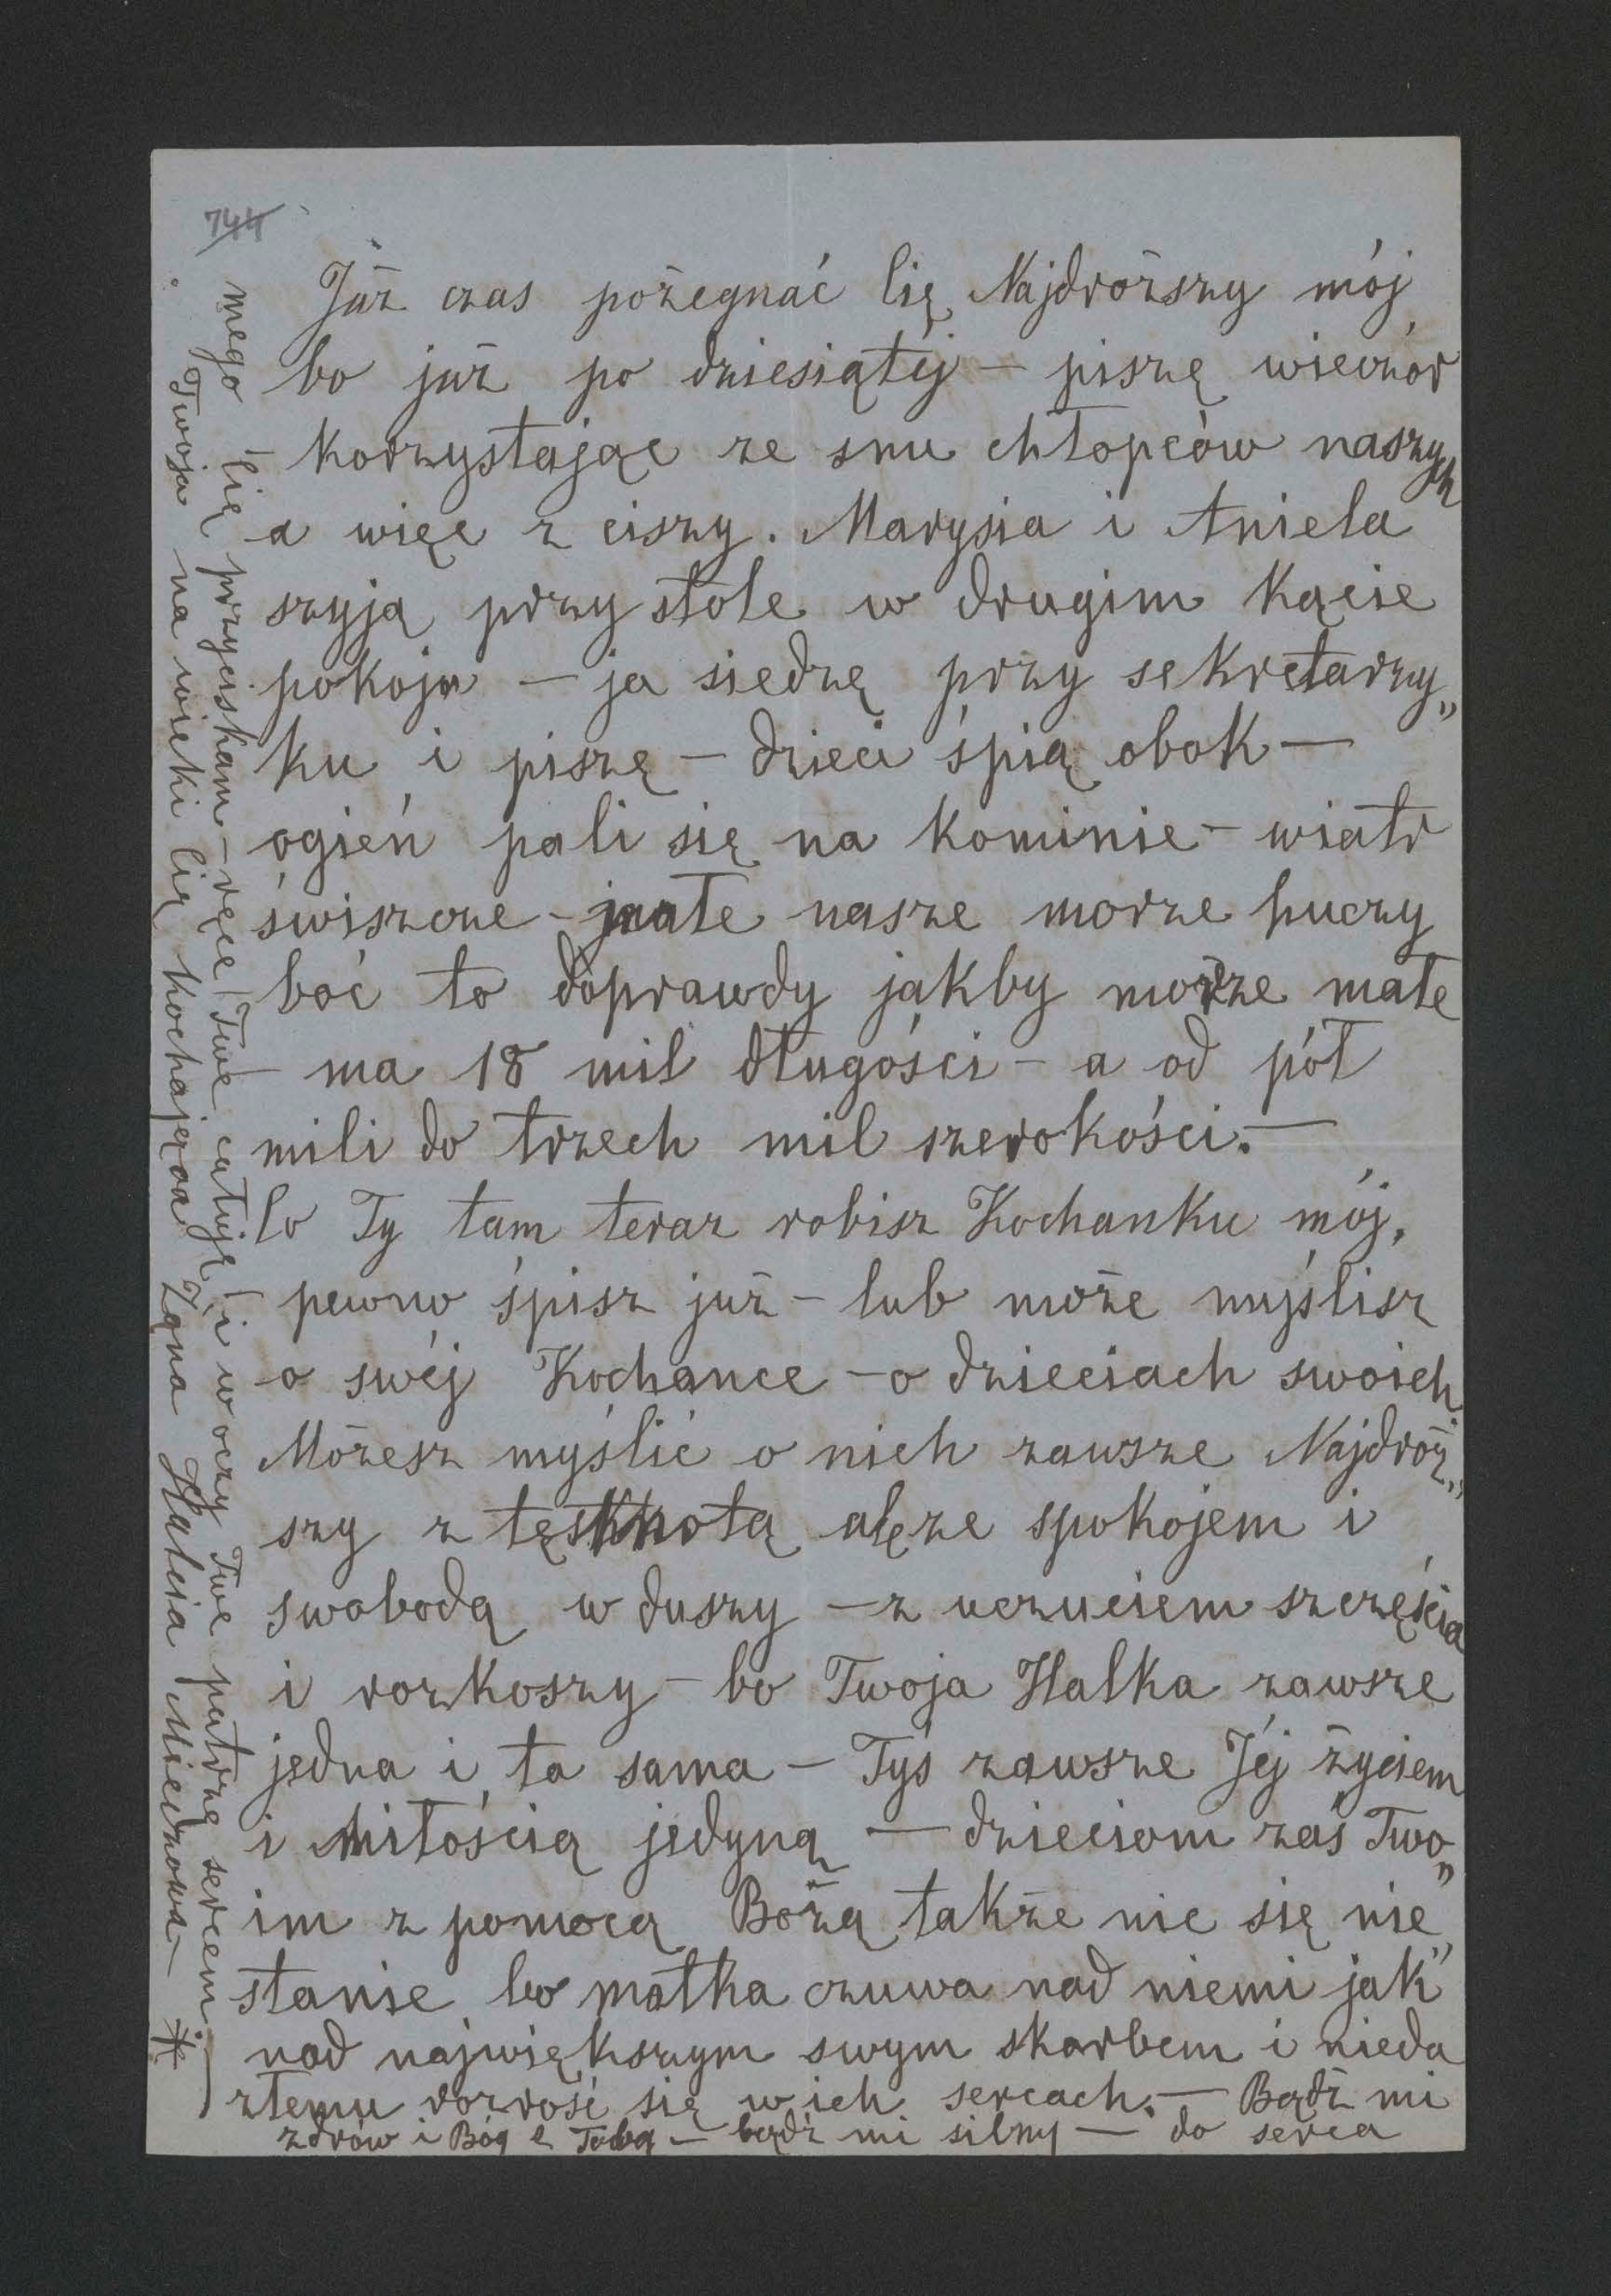 744
Już czas pożegnać Cię Najdroższy mój
bo już po dziesiątéj – piszę wieczór
korzystając ze snu chłopców naszych
a więc z ciszy. Marysia i Aniela
szyją przy stole w drugim kącie
pokoju – ja siedzę przy sekretarzy„
ku i piszę – dzieci śpią obok –
ogień pali się na kominie – wiatr
świszcze – małe nasze morze huczy
boć to doprawdy jakby morze małe
– ma 18 mil długości – a od pół
mili do trzech mil szerokości. –
Co Ty tam teraz robisz Kochanku mój,
pewno śpisz już – lub może myślisz
o swéj Kochance – o dzieciach swoich.
Możesz myślić o nich zawsze Najdroż„
szy z tęsknotą ale ze spokojem i
swobodą w duszy – z uczuciem szczęścia
i rozkoszy – bo Twoja Halka zawsze
jedna i ta sama – Tyś zawsze Jéj życiem
i miłością jedyną – dzieciom zaś Two„
im z pomocą Bożą także nic się nie„
stanie bo matka czuwa nad niemi jak
nad największym swym skarbem i nieda
złemu rozrość się w ich sercach. – Bądź mi
zdrów i Bóg z Tobą – bądź mi silny – do serca
mego Cię przyciskam – ręce Twe całuję i w oczy Twe patrzę sercem. –
Twoja na wieki Cię kochająca Żona Halcia Miedzowa – *